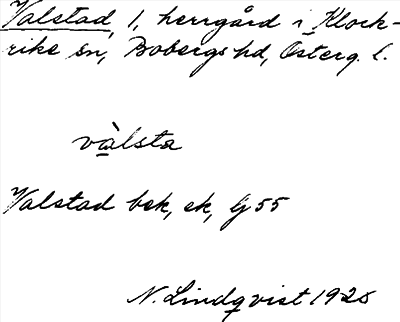 Valstad, 1, herrgård i Klock-
rike sn, Bobergs hd, Österg. l.
vàlsta
Valstad bsk, ek, G 55
N. Lindqvist 1925